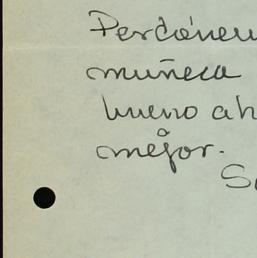 Perdónen
muñeca
bueno ah
mejor.
S